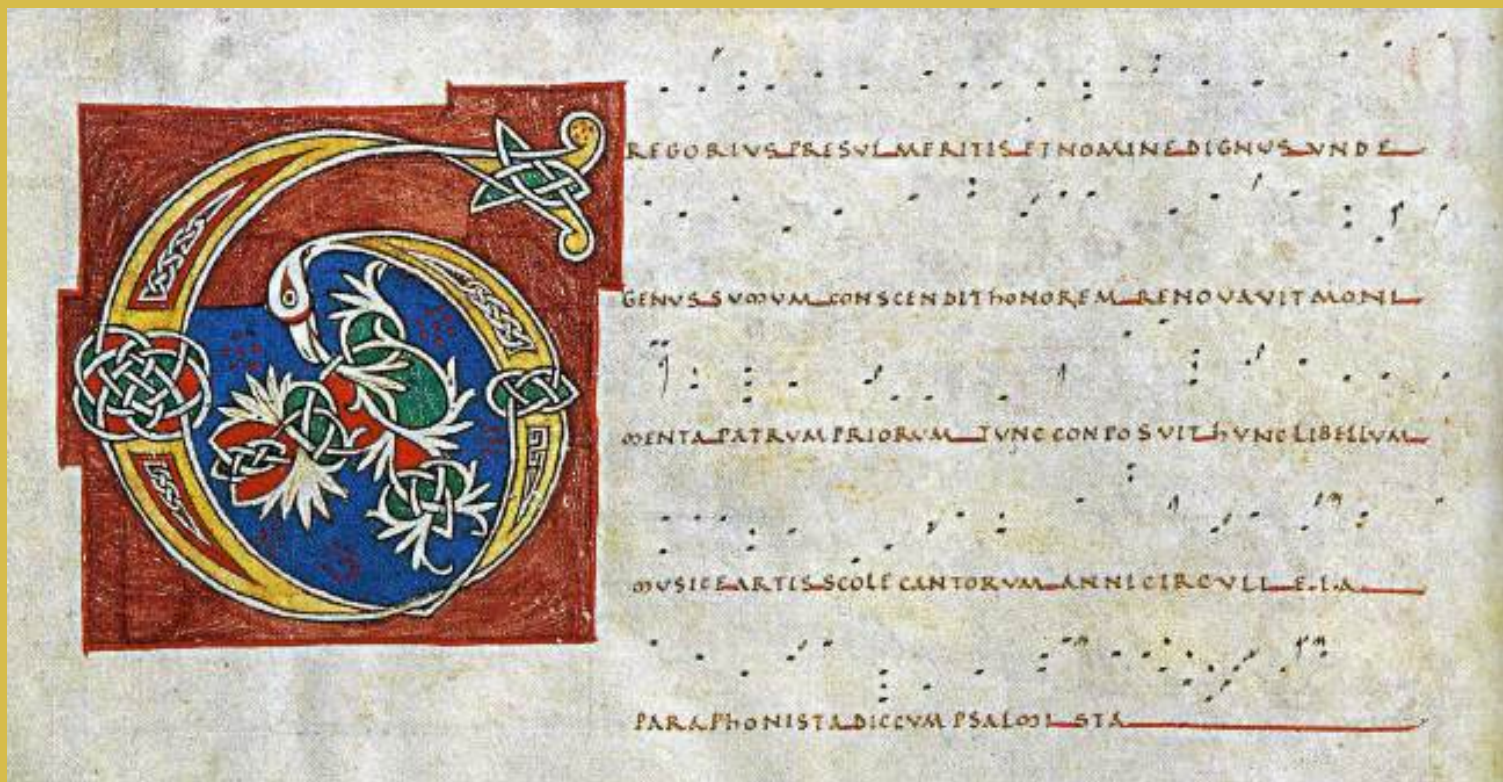 GREGORIVS PRESVL MERITIS ET NOMINE DIGNVS VNDE
GENVS SVMVM CONSCENDIT HONOREM RENOVAVIT MONI
MENTA PATRVM PRIORVM TVNC CONPOSVIT HVNC LIBELLVM
MVSICE ARTIS SCOLE CANTORVM ANNI CIRCVLI E.I.A
PARAPHONISTA DICCVM PSALMISTA